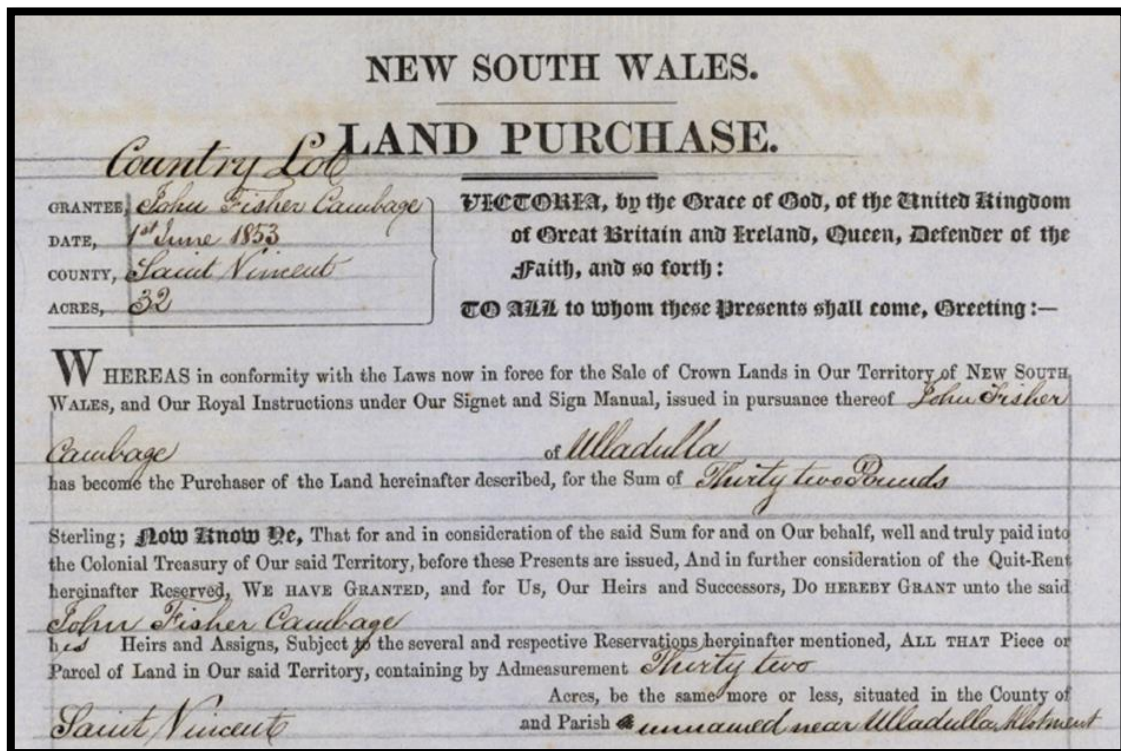 NEW SOUTH WALES.
LAND PURCHASE.
Country Lot
GRANTEE, John Fisher Cambage
DATE, 1st June 1853
COUNTY, Saint Vincent
ACRES, 32
VICTORIA, by the Grace of God, of the United Kingdom
of Great Britain and Ireland, Queen, Defender of the
Faith, and so forth:
TO ALL to whom these Presents shall come, Greeting:—
WHEREAS in conformity with the Laws now in force for the Sale of Crown Lands in Our Territory of NEW SOUTH
WALES, and Our Royal Instructions under Our Signet and Sign Manual, issued in pursuance thereof John Fisher
Cambage of Ulladulla
has become the Purchaser of the Land hereinafter described, for the Sum of Thirty two Pounds
Sterling; Now Know Ye, That for and in consideration of the said Sum for and on Our behalf, well and truly paid into
the Colonial Treasury of Our said Territory, before these Presents are issued, And in further consideration of the Quit-Rent
hereinafter Reserved, WE HAVE GRANTED, and for Us, Our Heirs and Successors, DO HEREBY GRANT unto the said
John Fisher Cambage
his Heirs and Assigns, Subject to the several and respective Reservations hereinafter mentioned, ALL THAT Piece or
Parcel of Land in Our said Territory, containing by Admeasurement Thirty two
Acres, be the same more or less, situated in the County of
Saint Vincent and Parish unnamed near Ulladulla Allotment